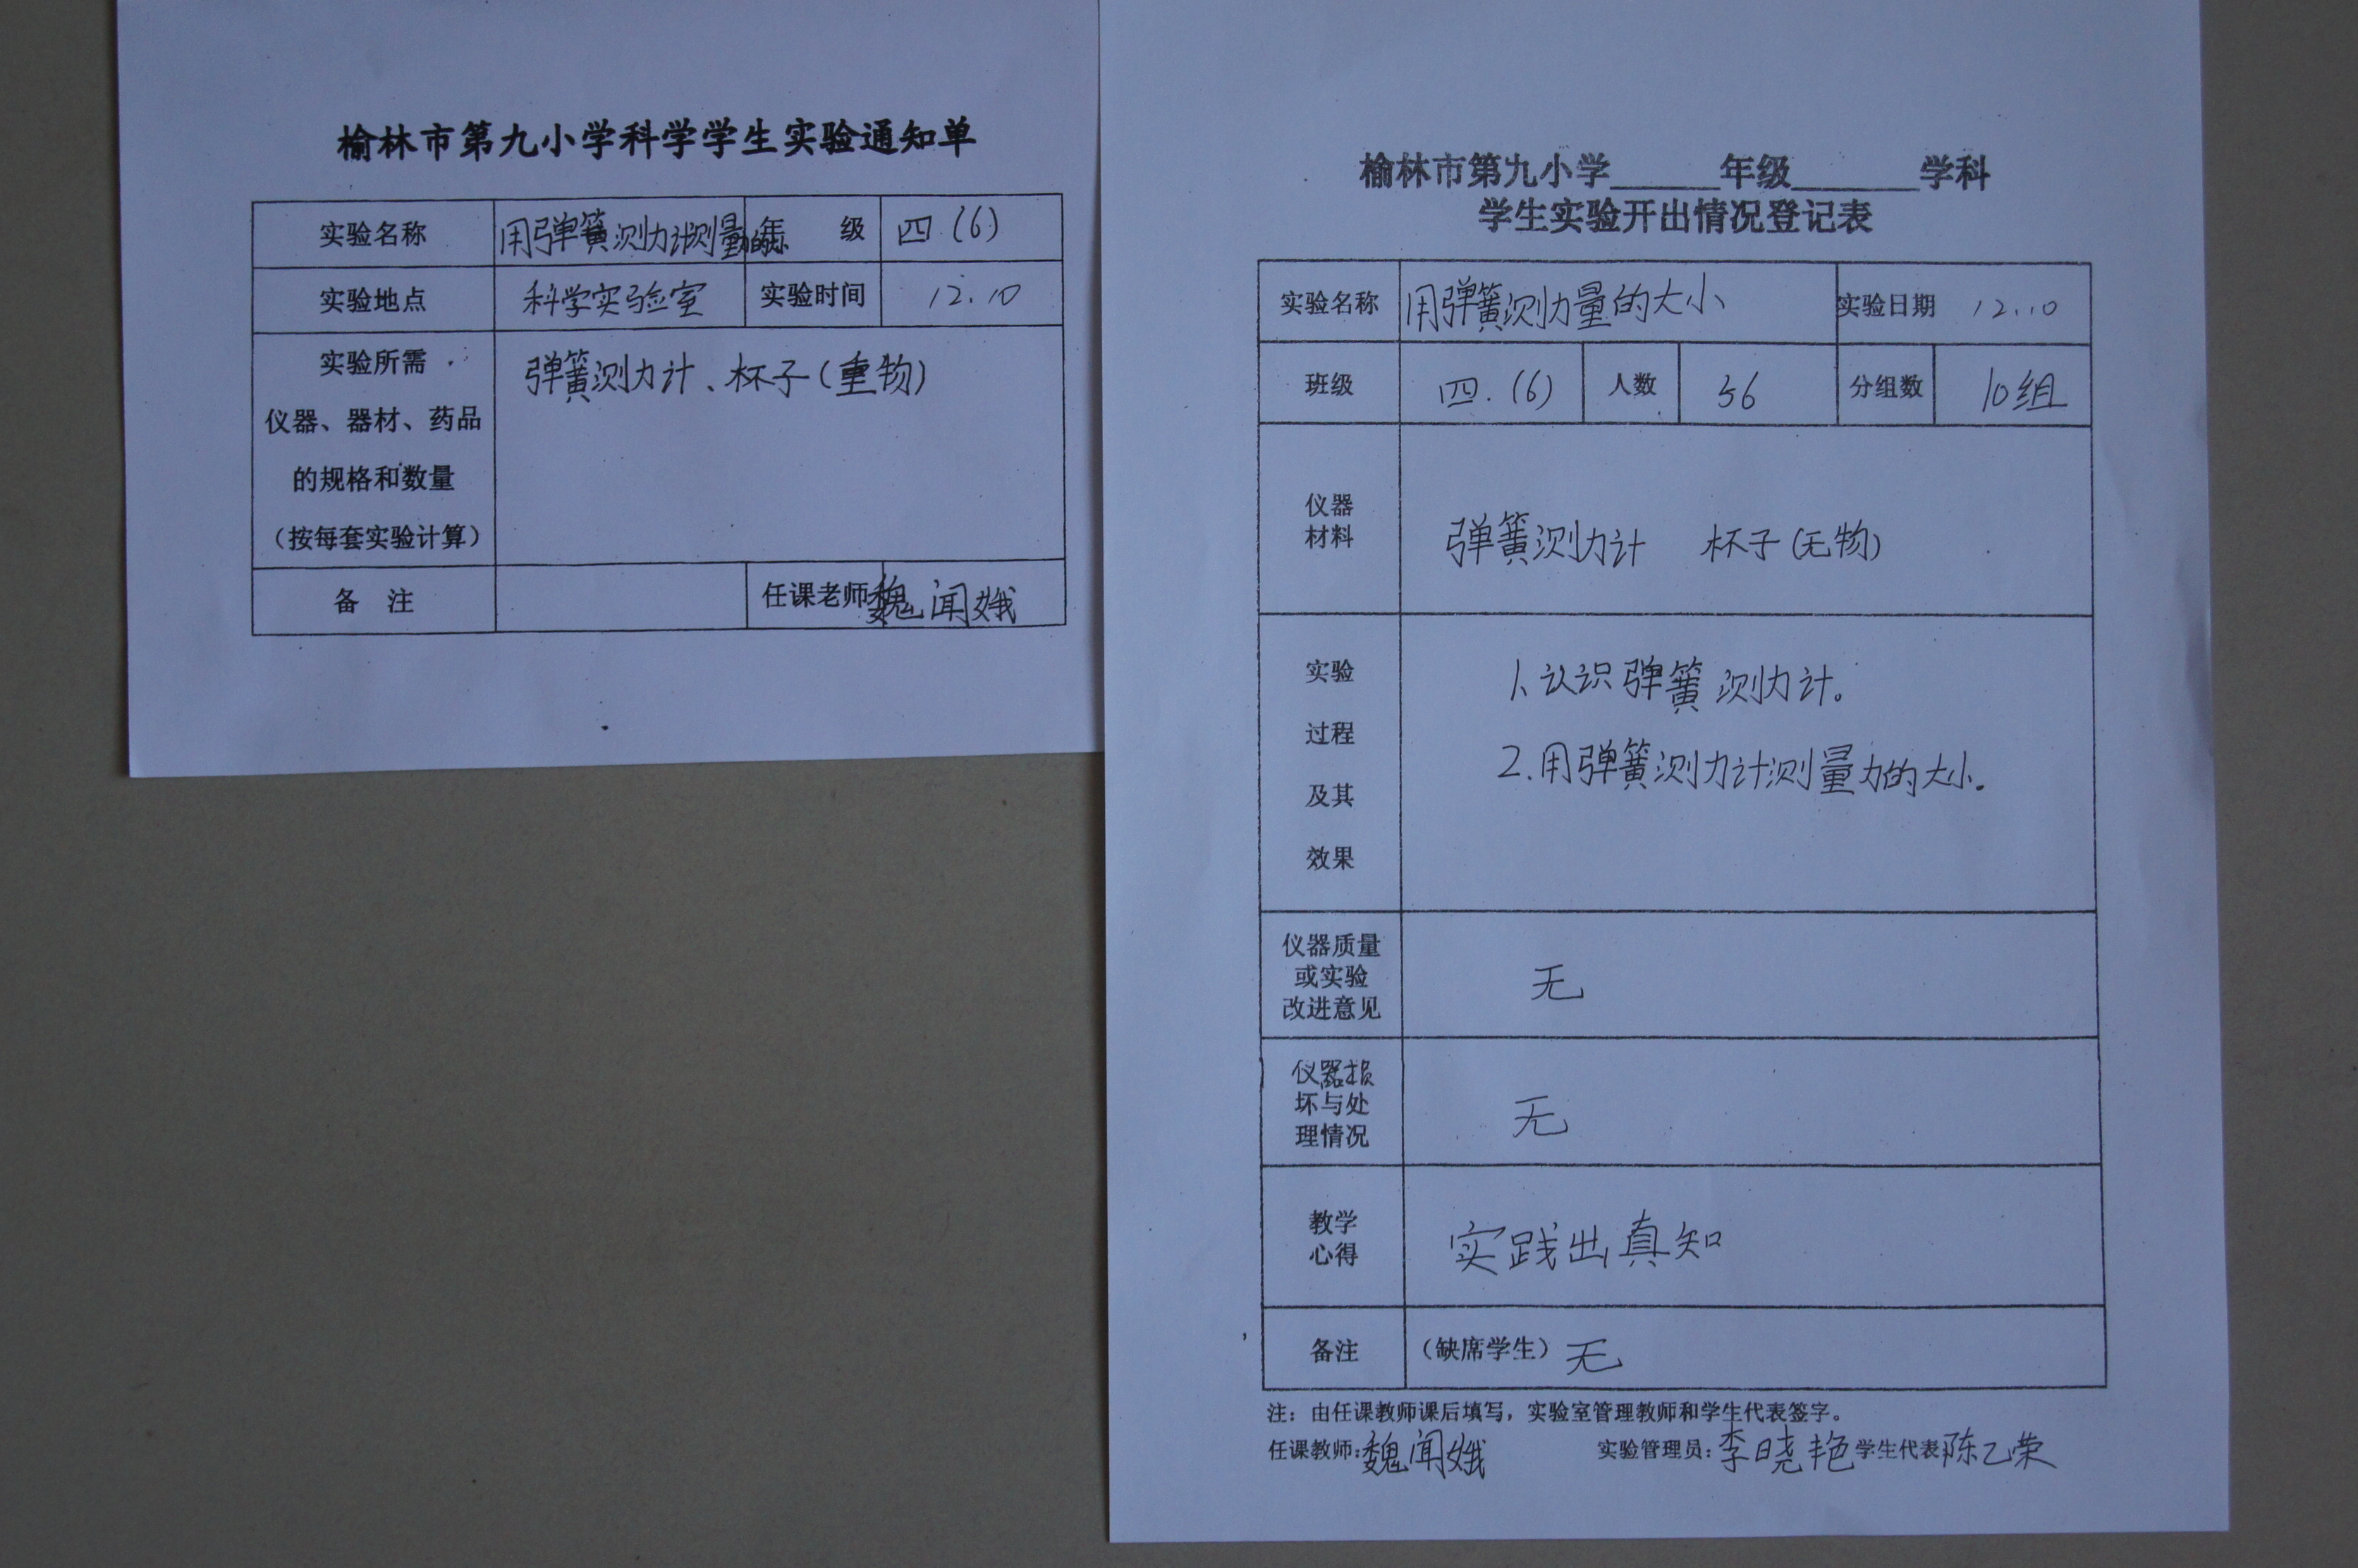 榆林市第九小学科学学生实验通知单
实验名称 用弹簧测力计测量 年 级 四(6)
实验地点 科学实验室 实验时间 12.10
实验所需
仪器、器材、药品
的规格和数量
(按每套实验计算)
弹簧测力计、杯子(重物)
备 注 任课老师 魏闻娥
榆林市第九小学______年级______学科
学生实验开出情况登记表
实验名称 用弹簧测力量的大小 实验日期 12.10
班级 四.(6) 人数 56 分组数 10组
仪器
材料
弹簧测力计 杯子(无物)
实验
过程
及其
效果
1、认识弹簧测力计。
2.用弹簧测力计测量力的大小.
仪器质量
或实验
改进意见
无
仪器损
坏与处
理情况
无
教学
心得
实践出真知
备注 (缺席学生) 无
注：由任课教师课后填写，实验室管理教师和学生代表签字。
任课教师:魏闻娥 实验管理员:李晓艳 学生代表 陈乙荣